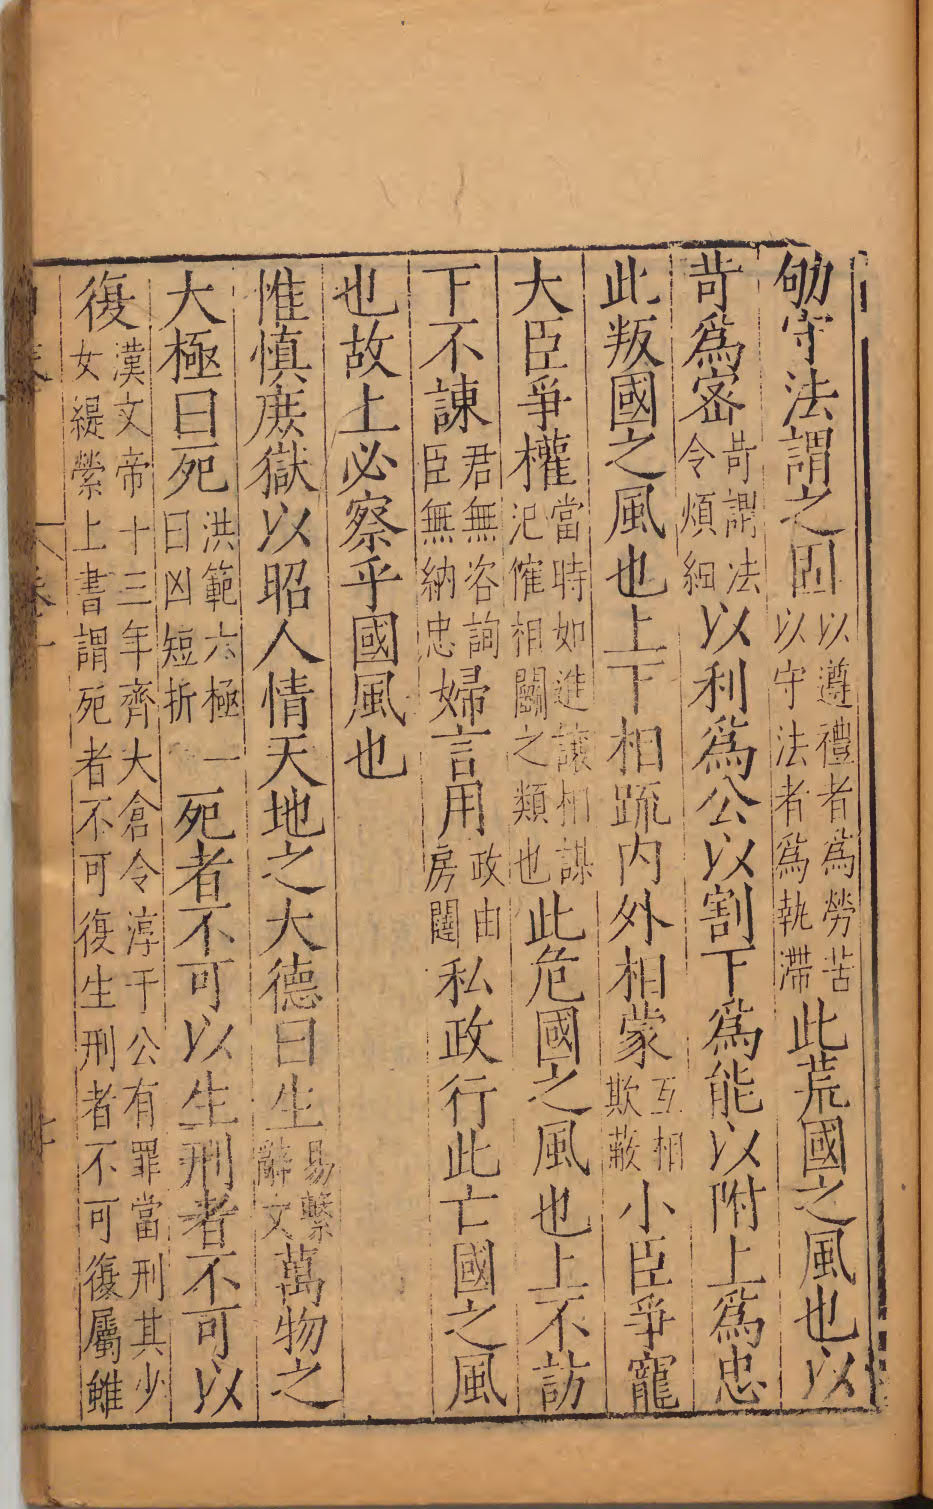 劬守法謂之固以遵禮者為勞苦以守法者為執滯此荒國之風也以
苛爲宻苛謂法令煩細以利爲公以割下爲能以附上爲忠
此叛國之風也上下相疏内外相蒙互相欺蔽小臣爭寵
大臣爭權當時如進讓相謀氾傕相鬭之類也此危國之風也上不訪
下不諫君無咨詢臣無納忠婦言用政由房闥私政行此亡國之風
也故上必察乎國風也
惟慎庻獄以昭人情天地之大德曰生易繫辭文萬物之
大極曰死洪範六極一曰凶短折死者不可以生刑者不可以
復漢文帝十三年齊大倉令淳于公有罪當刑其少女緹縈上書謂死者不可復生刑者不可復屬雖
卷一